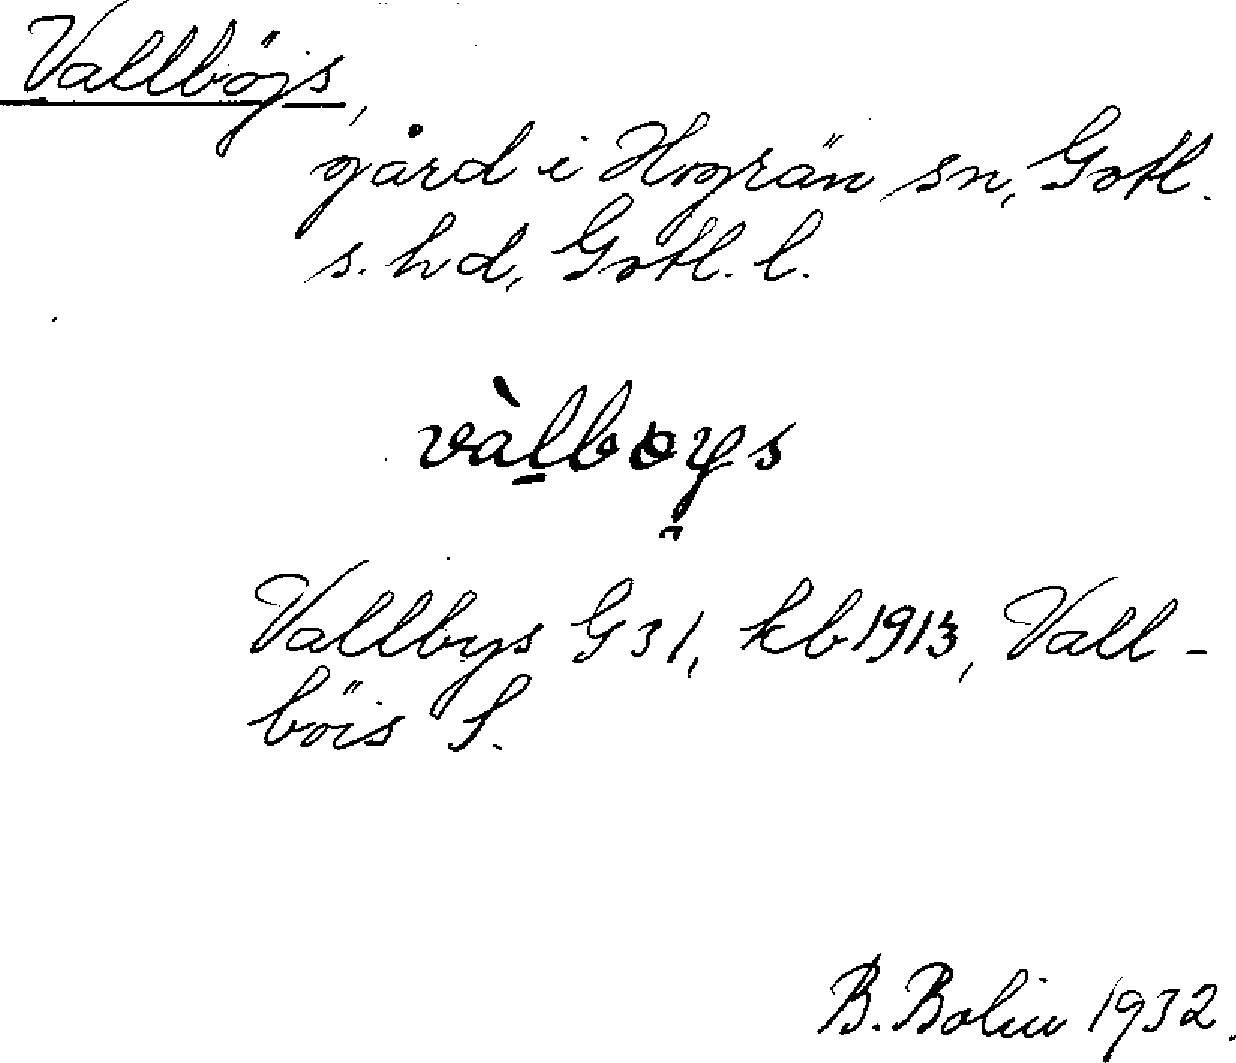 Vallböjs,
gård i Hogrän sn, Gotl.
s. hd, Gotl. l.
vàlbɵys
Vallbys G31, kb 1913, Vall-
böis S.
B. Bolin 1932.